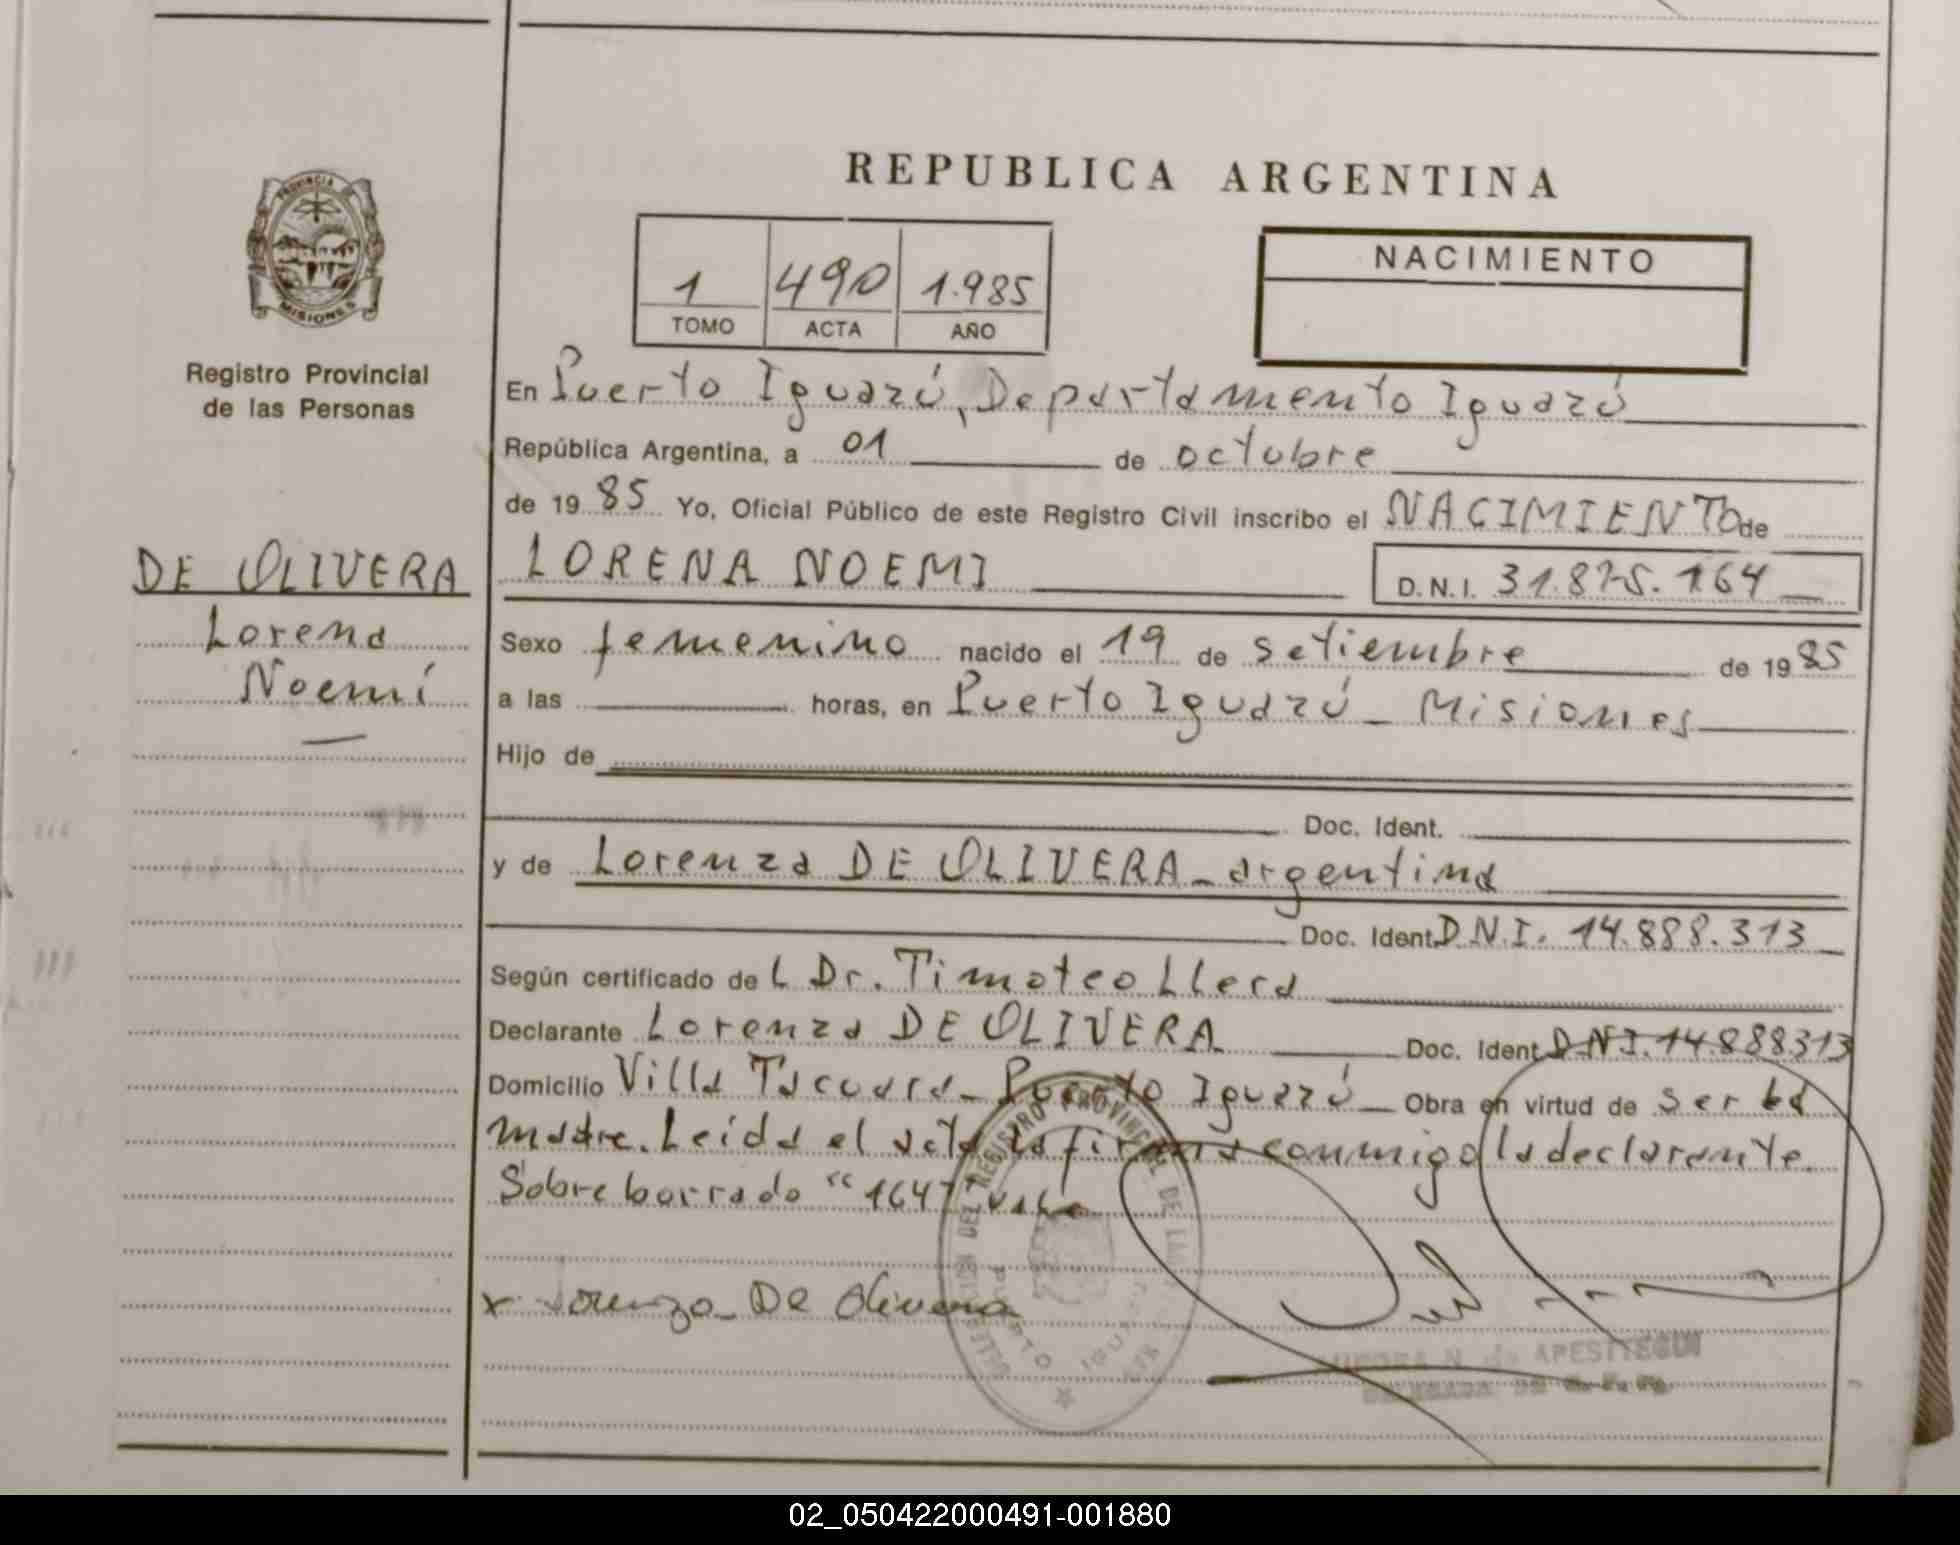 REPUBLICA ARGENTINA
PROVINCIA DE
MISIONES
Registro Provincial
de las Personas
1 490 1.985
TOMO ACTA AÑO
NACIMIENTO
En Puerto Iguazú, Departamento Iguazú
República Argentina, a 01 de octubre
de 1985 Yo, Oficial Público de este Registro Civil inscribo el NACIMIENTO de
DE OLIVERA
Lorena
Noemí
LORENA NOEMI
D.N.I. 31.875.164
Sexo femenino nacido el 19 de setiembre de 1985
a las horas, en Puerto Iguazú - Misiones
Hijo de
Doc. Ident.
y de Lorenza DE OLIVERA - argentina
Doc. Ident. D.N.I. 14.888.313
Según certificado del Dr. Timoteo Llera
Declarante Lorenza DE OLIVERA Doc. Ident. D.N.I. 14.888313
Domicilio Villa Tacuara - Puerto Iguazú - Obra en virtud de ser la
madre. Leída el acta la firma conmigo la declarante.
Sobre borrado "164" vale
x Lorenza De Olivera
DEL REGISTRO PROVINCIAL DE LAS
PUERTO IGUAZU
N. de APESTEGUI
02_050422000491-001880